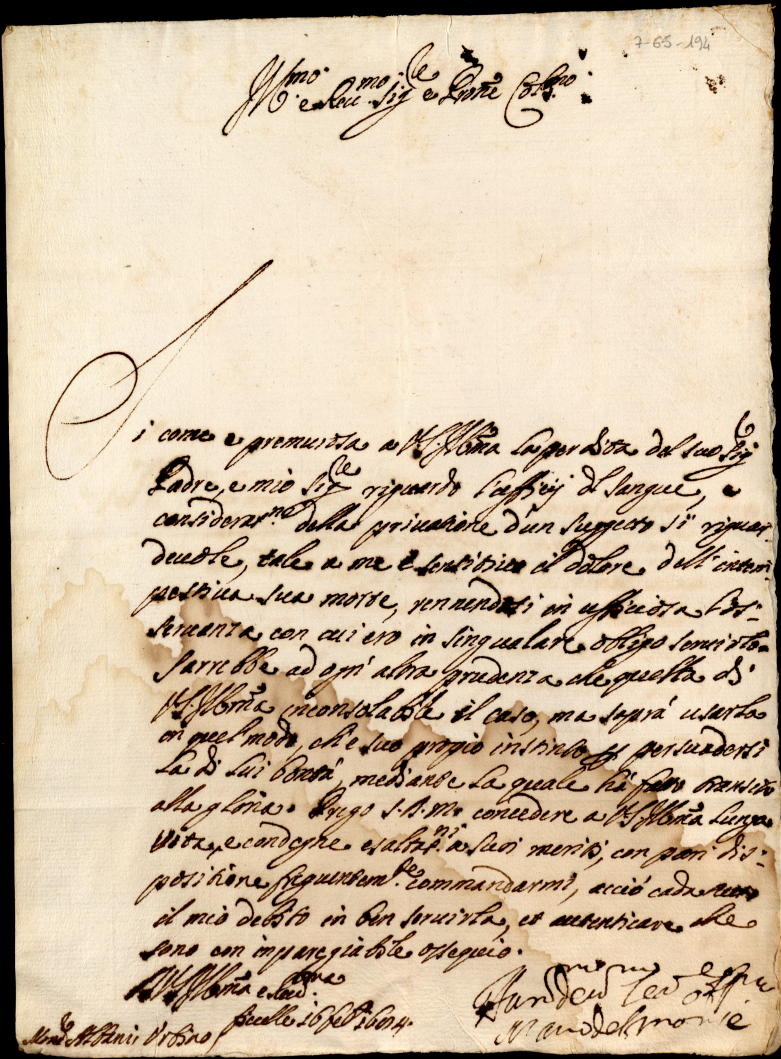 7-65-194
Ill.mo e Ecc.mo Sig.re e Prone Col.mo
Si come e premurosa a VS. Illma la perdita del suo Sig.
Padre, e mio Sig.re riguardo l'affeij di sangue, e
considerat.ne della privatione d'un suggetto si riguar-
devole, tale a me è sensitivo il dolore dell' intem-
pestiva sua morte, rennendosi in ufficiosa l'os-
servanza con cui ero in singualare obligo servirlo.
Sarrebbe ad ogni altra prudenza che quella di
VS. Illma inconsolabile il caso, ma saprà usarla
in quel modo, ch'e suo propio instinto persuadersi
la di lui bontà, mediante la quale hà fatto transito
alla gloria. Prego S.D.M. concedere a VS. Illma lunga
vita, e condegne esaltat.ni a suoi meriti, con pari dis-
positione frequentem.te commandarmi, acciò cada
il mio debito in ben servirla, et autenticare che
sono con impareggiabile ossequio.
D VS. Illma e Ecc.ma
16 1694.
Mons.r Albani Urbino